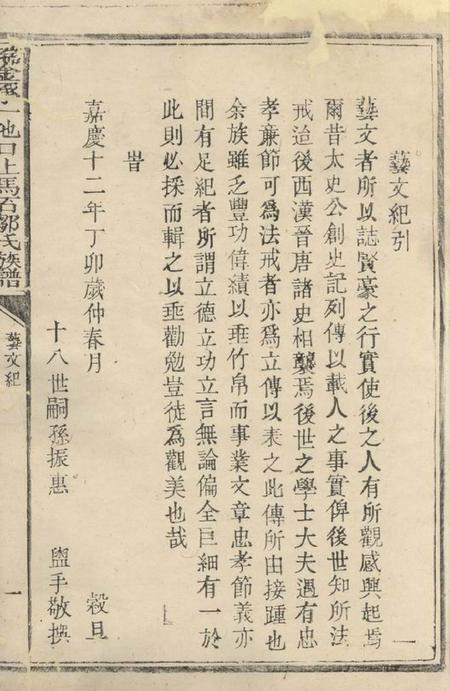 藝文紀引
藝文者所以誌賢豪之行實使後之人有所觀感興起焉
爾昔太史公創史記列傳以載人之事實俾後世知所法
戒迨後西漢晉唐諸史相襲焉後世之學士大夫遇有忠
孝亷節可為法戒者亦為立傳以表之此傳所由接踵也
余族雖乏豐功偉績以垂竹帛而事業文章忠孝節義亦
間有足紀者所謂立德立功立言無論偏全巨細有一於
此則必採而輯之以垂勸勉豈徒為觀美也哉
旹
嘉慶十二年丁卯歲仲春月 榖旦
十八世嗣孫振惠 盥手敬撰
池口上馬石鄒氏族譜
藝文紀
一